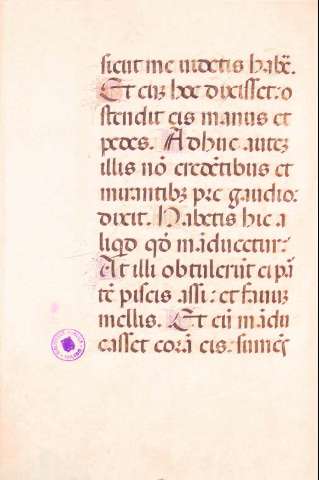 sicut me uidetis habē.
Et cuȝ hoc dixisset: o
stendit eis manus et
pedes. Adhuc auteȝ
illis nō credētibus et
mirantibȝ pre gaudio:
dixit. Habetis hic a
liqd qō māducetur:
At illi obtulerūt ei pā
tē piscis assi: et fauuȝ
mellis. Et cū mādu
casset corā eis: sumēs